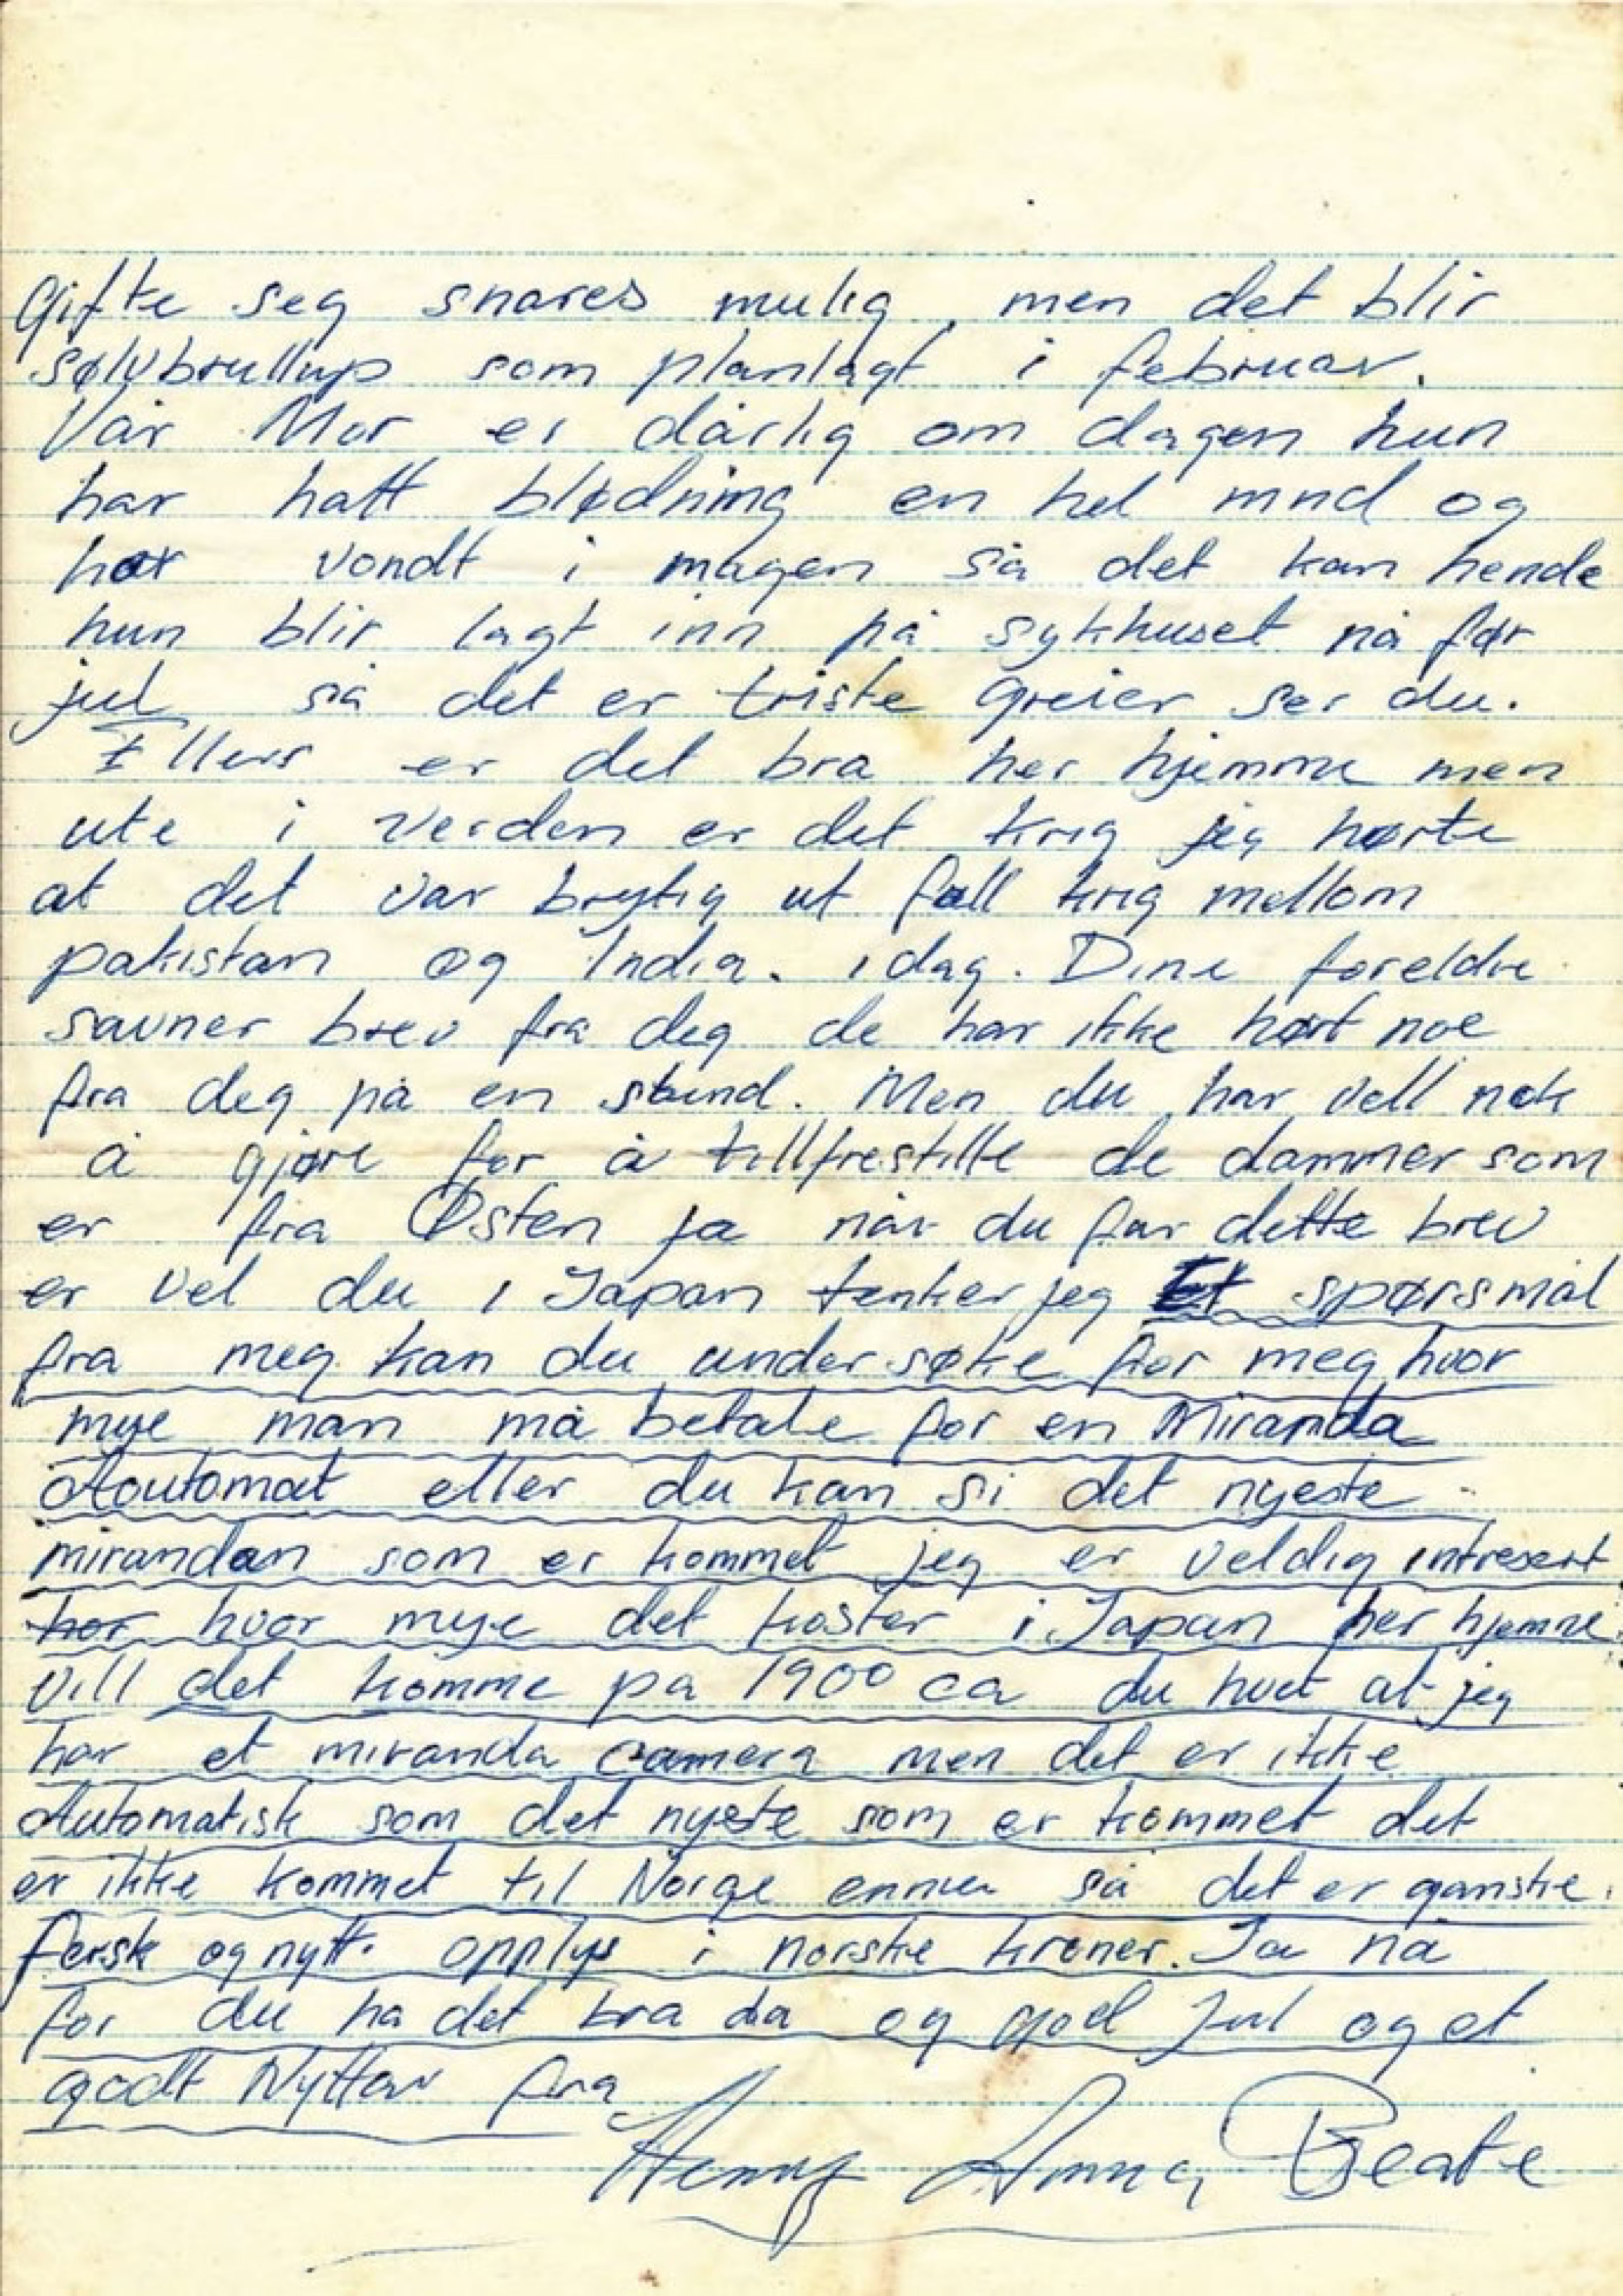 Gifte seg snares mulig, men det blir
sølvbrullup som planlagt i februar.
Vår Mor er dårlig om dagen hun
har hatt blødning en hel mnd og
har vondt i magen så det kan hende
hun blir lagt inn på sykhuset nå før
jul så det er triste greier ser du.
Ellers er det bra her hjemme men
ute i verden er det krig jeg hørte
at det var brytig ut full krig mellom
pakistan og India. idag. Dine foreldre
savner brev fra deg de har ikke hørt noe
fra deg på en stund. Men du har vell nok
å gjøre for å tillfrestille de dammer som
er fra Østen ja når du får dette brev
er vel du i Japan tenker jeg Et spørsmål
fra meg kan du undersøke for meg hvor
mye man må betale for en Miranda
Aoutomat eller du kan si det nyeste
mirandan som er kommet jeg er veldig intresert
hor hvor mye det koster i Japan her hjemme
vill det komme på 1900 ca du hvet at jeg
har et miranda camera men det er ikke
Automatisk som det nyeste som er kommet det
er ikke kommet til Norge ennu så det er ganske
fersk og nytt. opplys i norske kroner. Ja nå
for du ha det bra da og god Jul og et
godt Nyttår fra
Henny Anna Beate